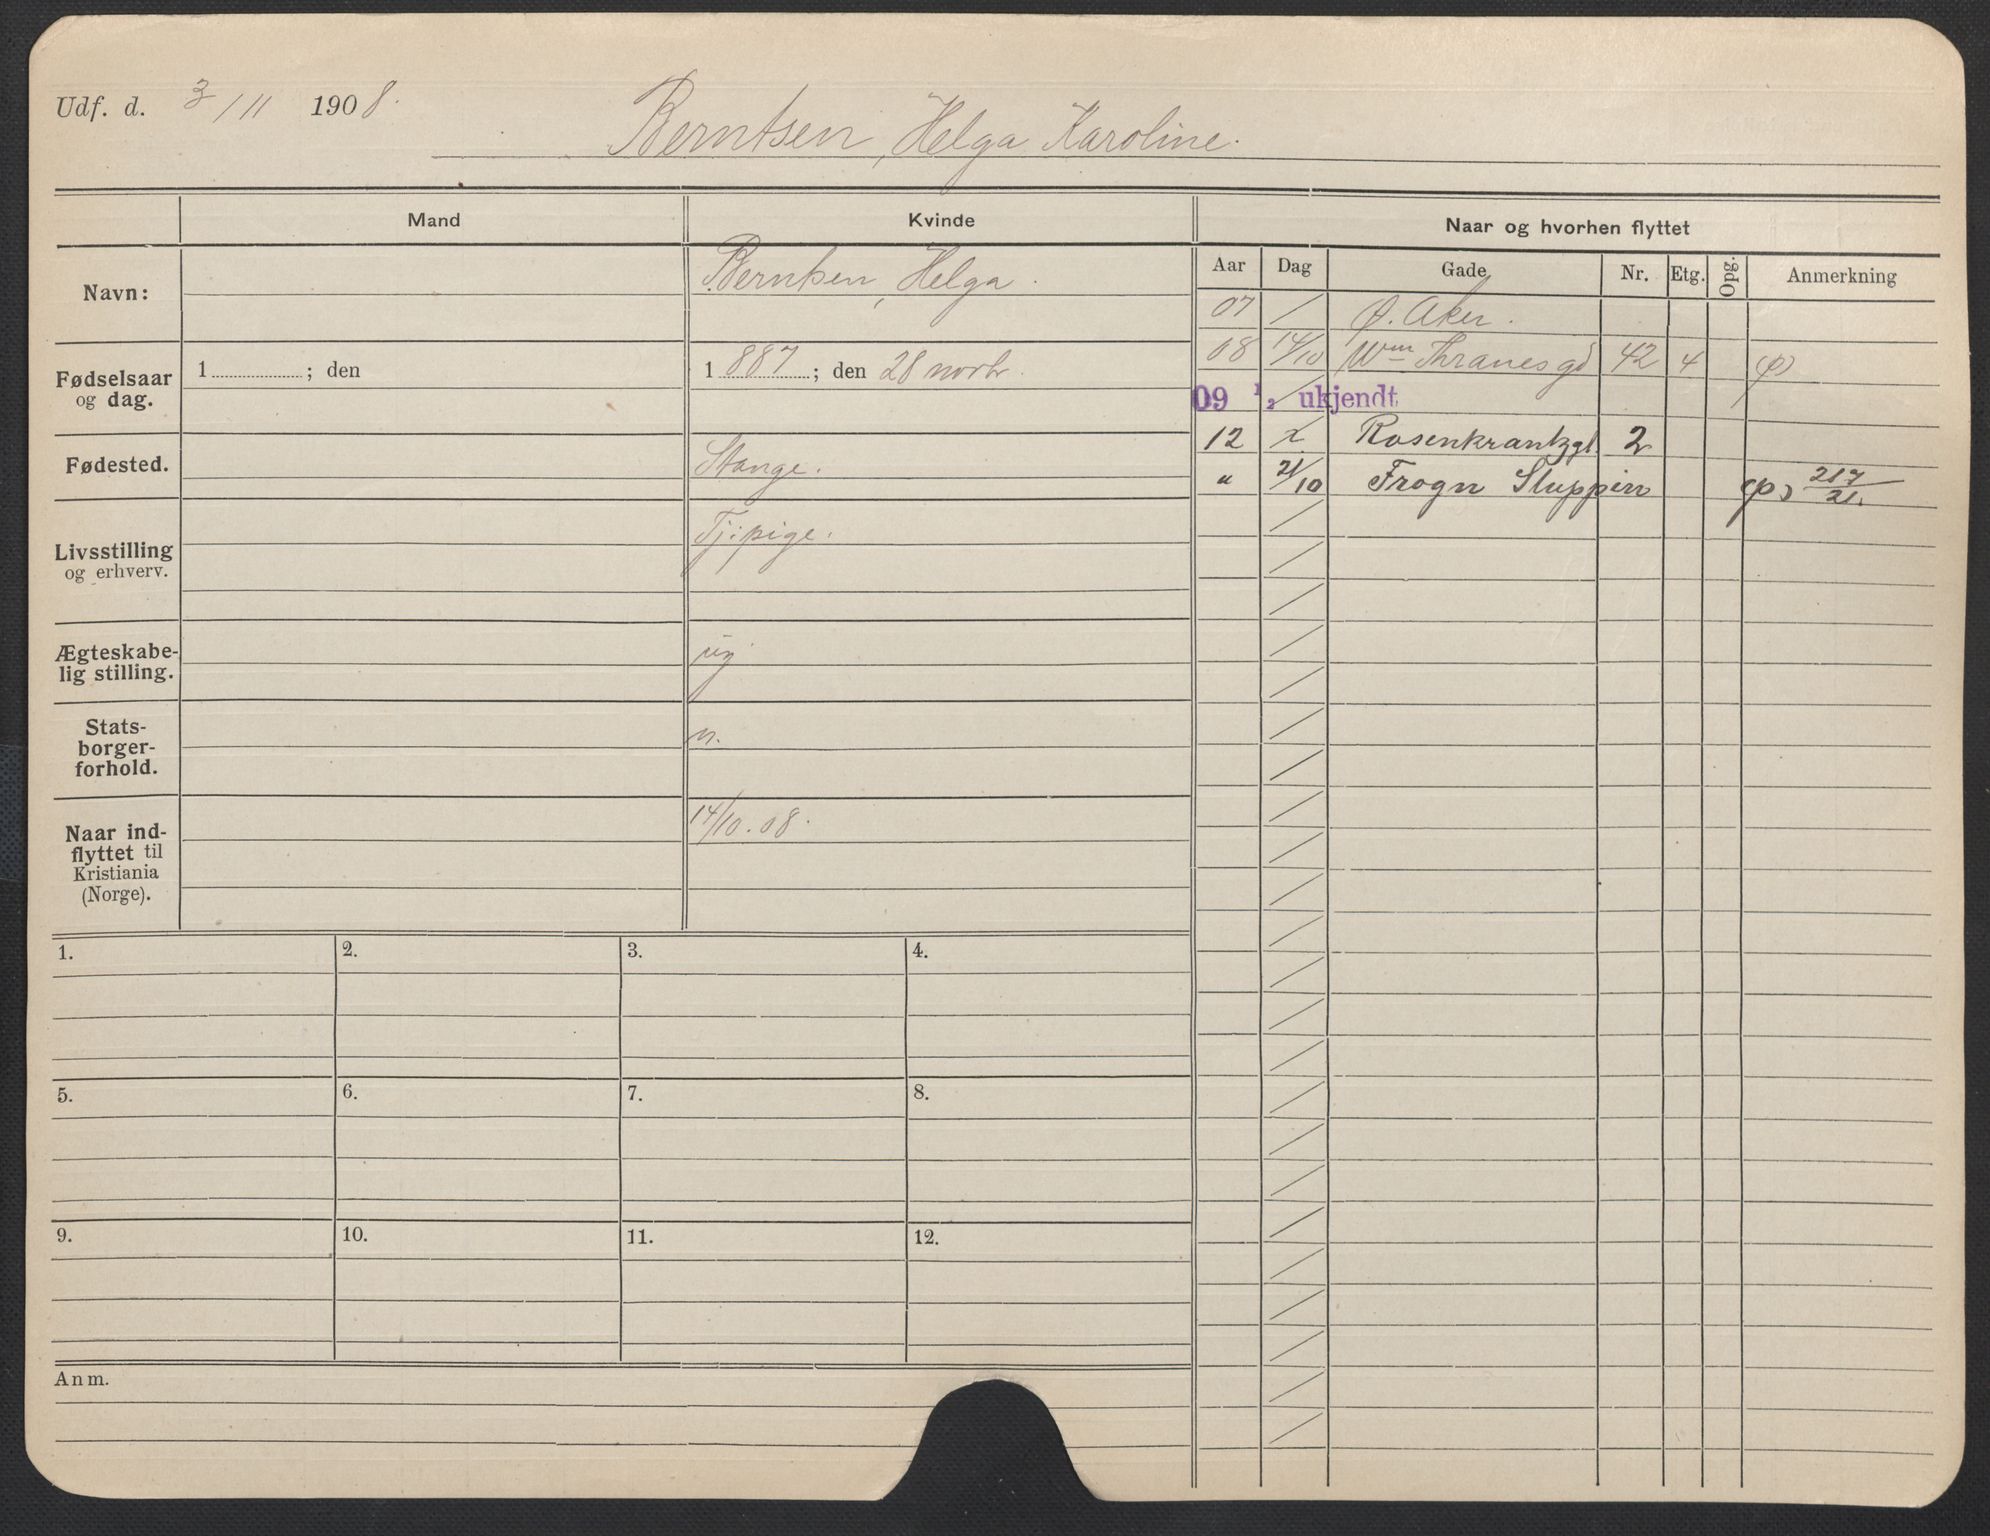 Udf. d. 3/11 1908.
Berntsen, Helga Karoline.
Mand Kvinde Naar og hvorhen flyttet
Aar Dag Gade Nr. Etg. Opg. Anmerkning
Navn: Berntsen, Helga.
07 / Ø. Aker.
08 14/10 Wm Thranes gd 42 4 φ
Fødselsaar og dag. 1 ; den 1887 ; den 28 novbr.
09 1/2 ukjendt
12 x Rosenkrantzgt. 2
Fødested. Stange.
" 21/10 Frogn Sluppen φ) 217/21.
Livsstilling og erhverv. Tj: pige.
Ægteskabe-
lig stilling. ug
Stats-
borger-
forhold. n.
Naar ind-
flyttet til
Kristiania
(Norge). 14/10.08.
1. 2. 3. 4.
5. 6. 7. 8.
9. 10. 11. 12.
Anm.